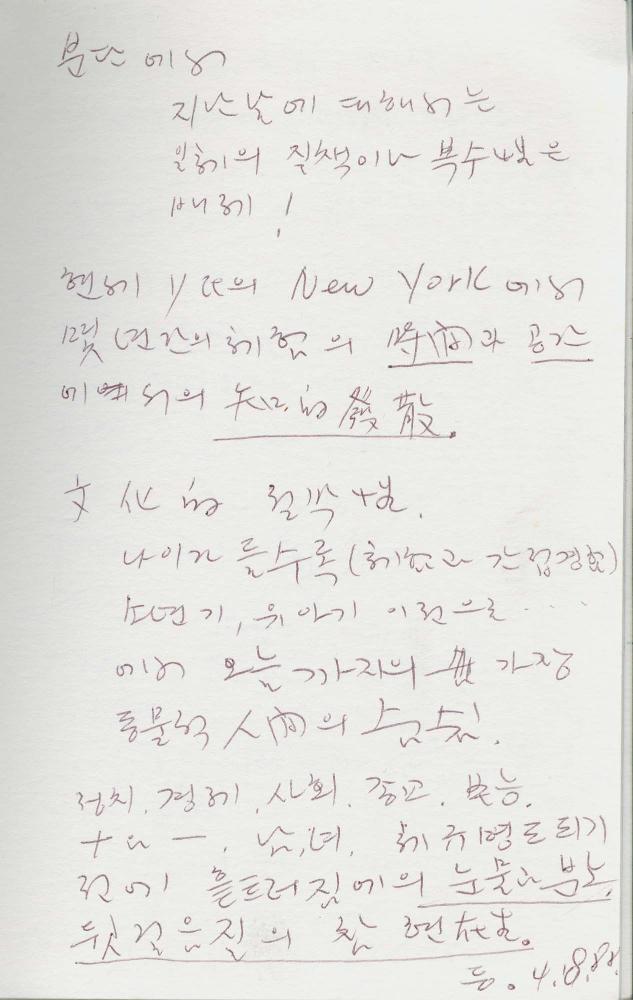 분단에서
지난날에 대해서는
일체의 질책이나 복수심은
배제!
현재 의 New York에서
몇 년간의 체험의 時間과 공간
에서의 知的 發散.
文化的
나이가 들수록(체험과 간접경험)
소년기, 유아기 이전으로 ....
에서 오늘까지의 가장
동물적 人間의
정치, 경제, 사회, 종교, 본능,
+ a -, 남,녀, 체 도 되기
전에 흩트러짐에의 눈물과 분노,
뒷걸음질의 참 현在.
등. 4.18.88.